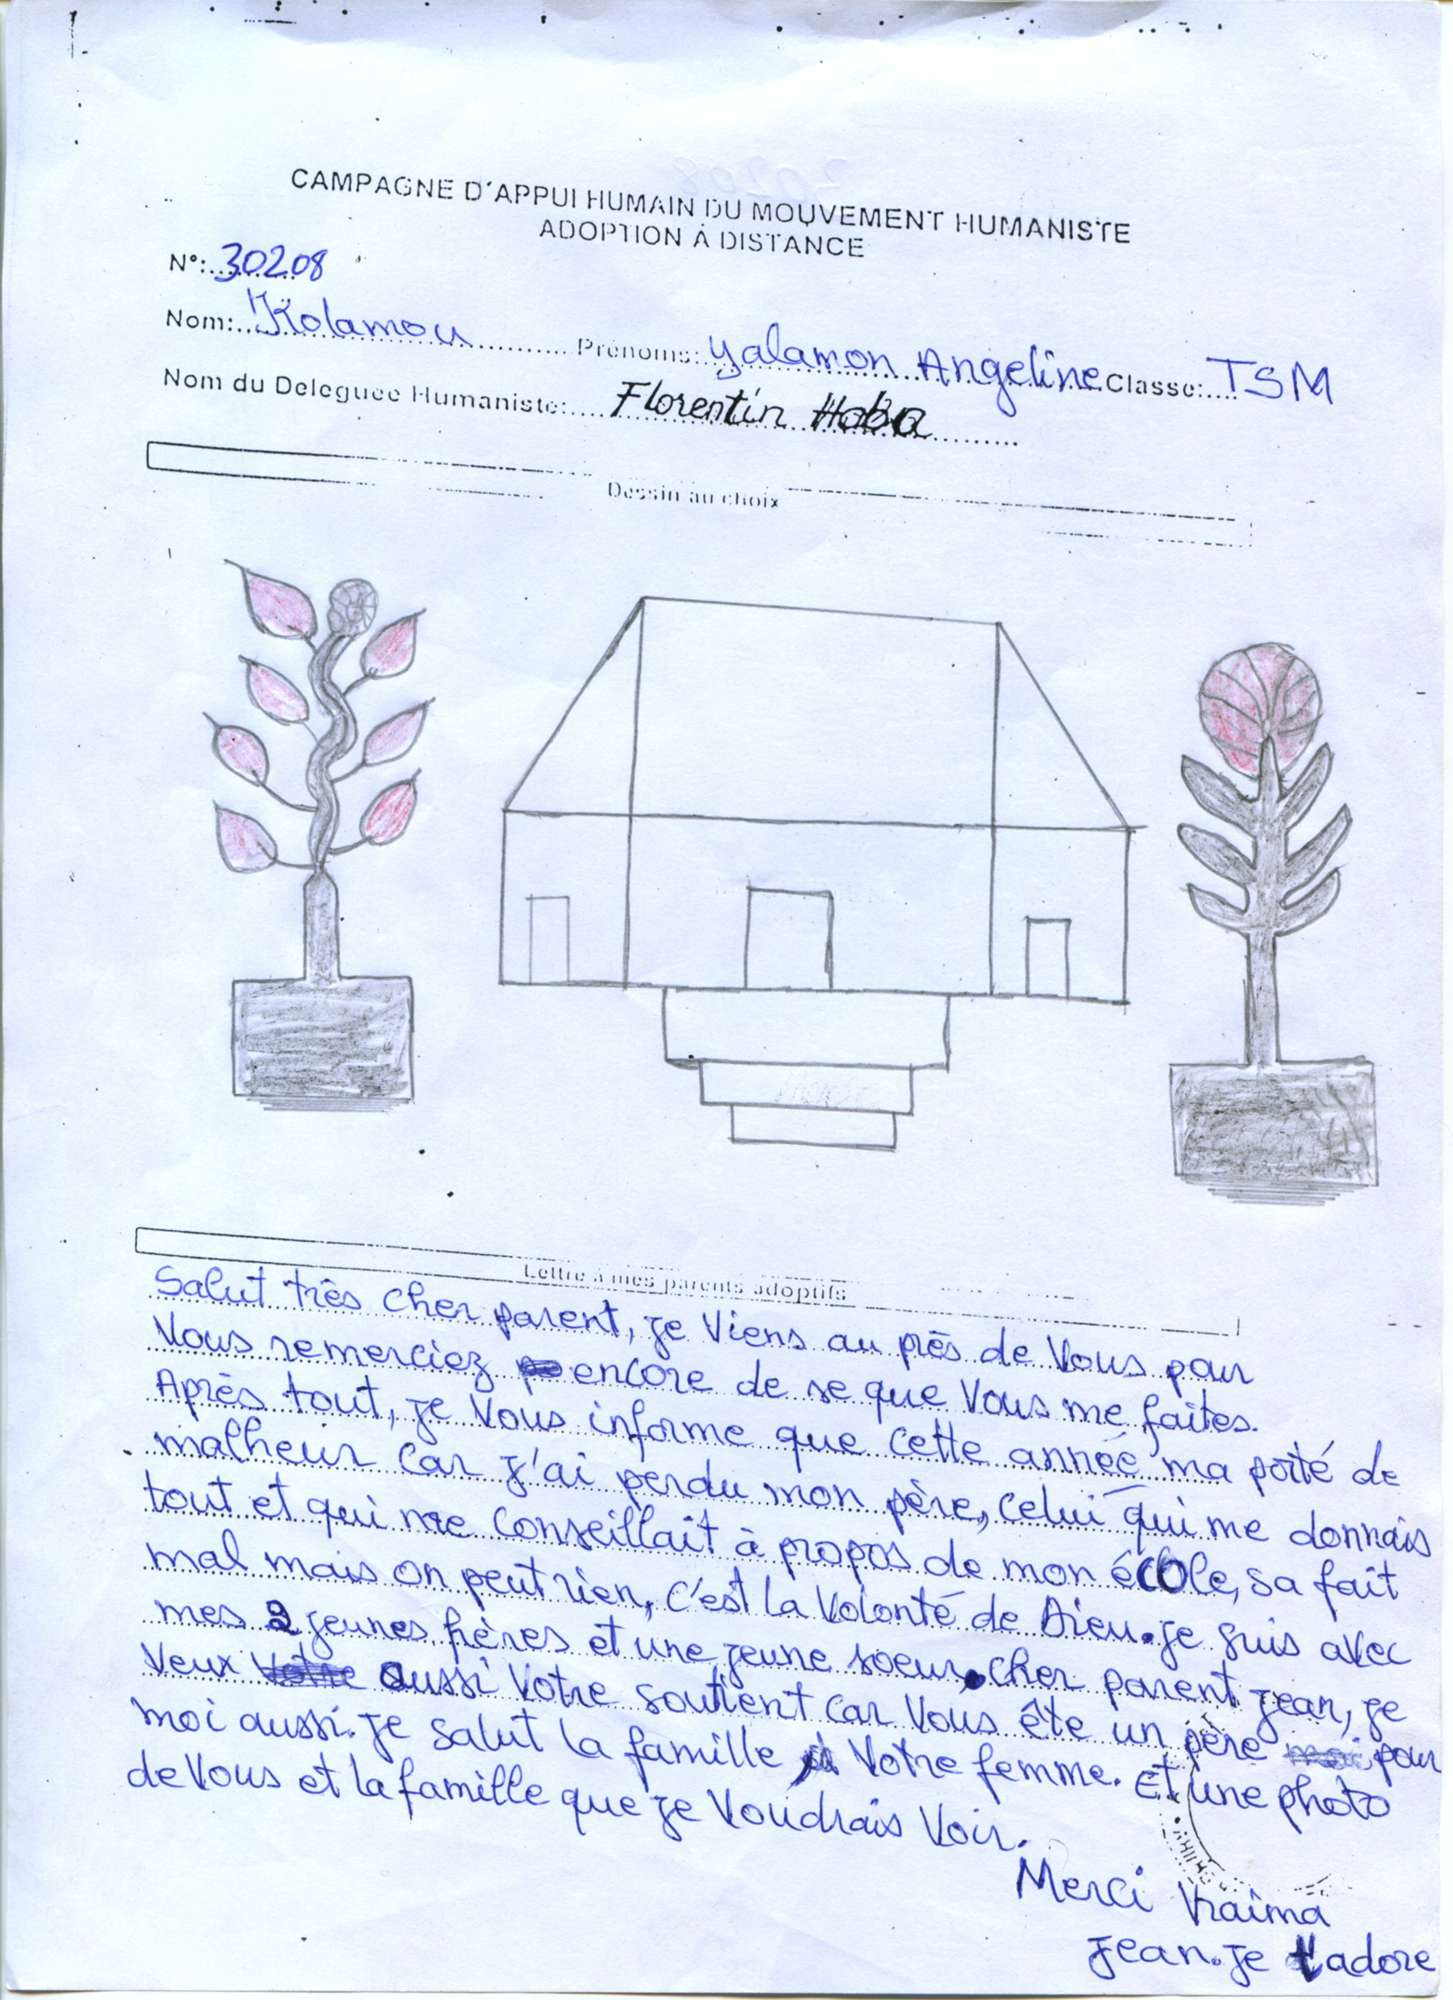 CAMPAGNE D'APPUI HUMAIN DU MOUVEMENT HUMANISTE
ADOPTION À DISTANCE
N°: 30208
Nom: Kolamou Prénoms: Yalamon Angeline Classe: TSM
Nom du Deleguee Humaniste: Florentin Haba
Dessin au choix
Lettre à mes parents adoptifs
Salut très cher parent, je Viens au près de Vous pour
Vous remerciez encore de se que Vous me faites.
Après tout, je Vous informe que cette année ma porté de
malheur car j'ai perdu mon père, celui qui me donnais
tout et qui me conseillait à propos de mon école, sa fait
mal mais on peut rien, c'est la Volonté de Dieu. je suis avec
mes 2 jeunes frères et une jeune soeur. cher parent jean, je
Veux aussi Votre soutient car Vous ête un père pour
moi aussi. je salut la famille Votre femme. Et une photo
de Vous et la famille que je Voudrais Voir.
Merci Vraima
jean. je t'adore